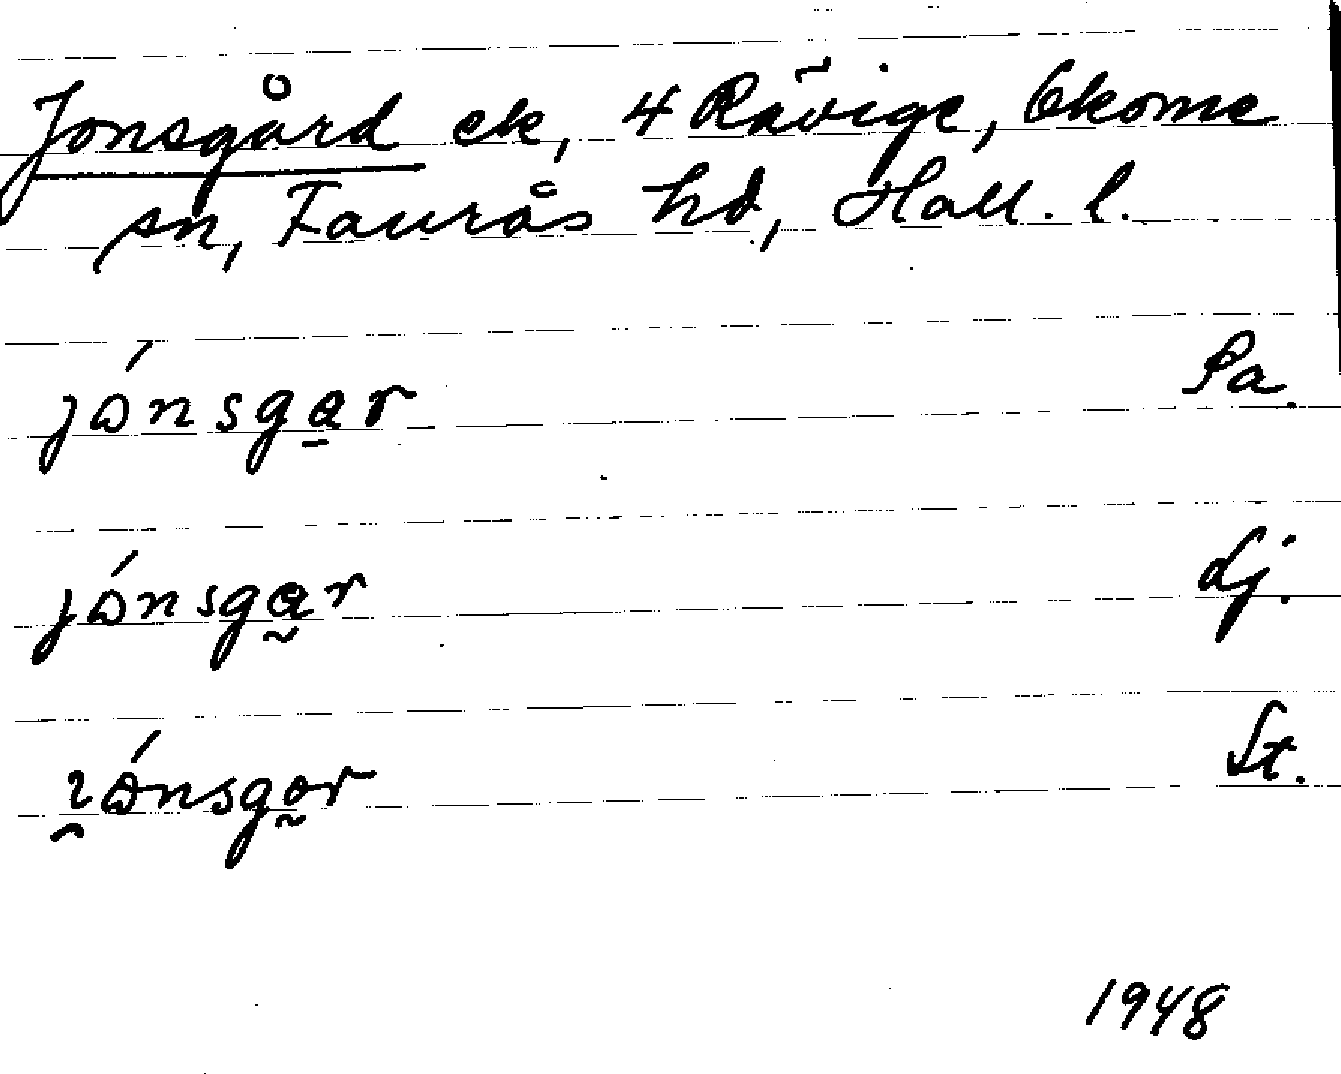 Jonsgård ek, 4 Rävige, Okome
sn, Faurås hd, Hall. l.
jónsgar Pa.
jónsgar dj.
ıónsgor St.
1948